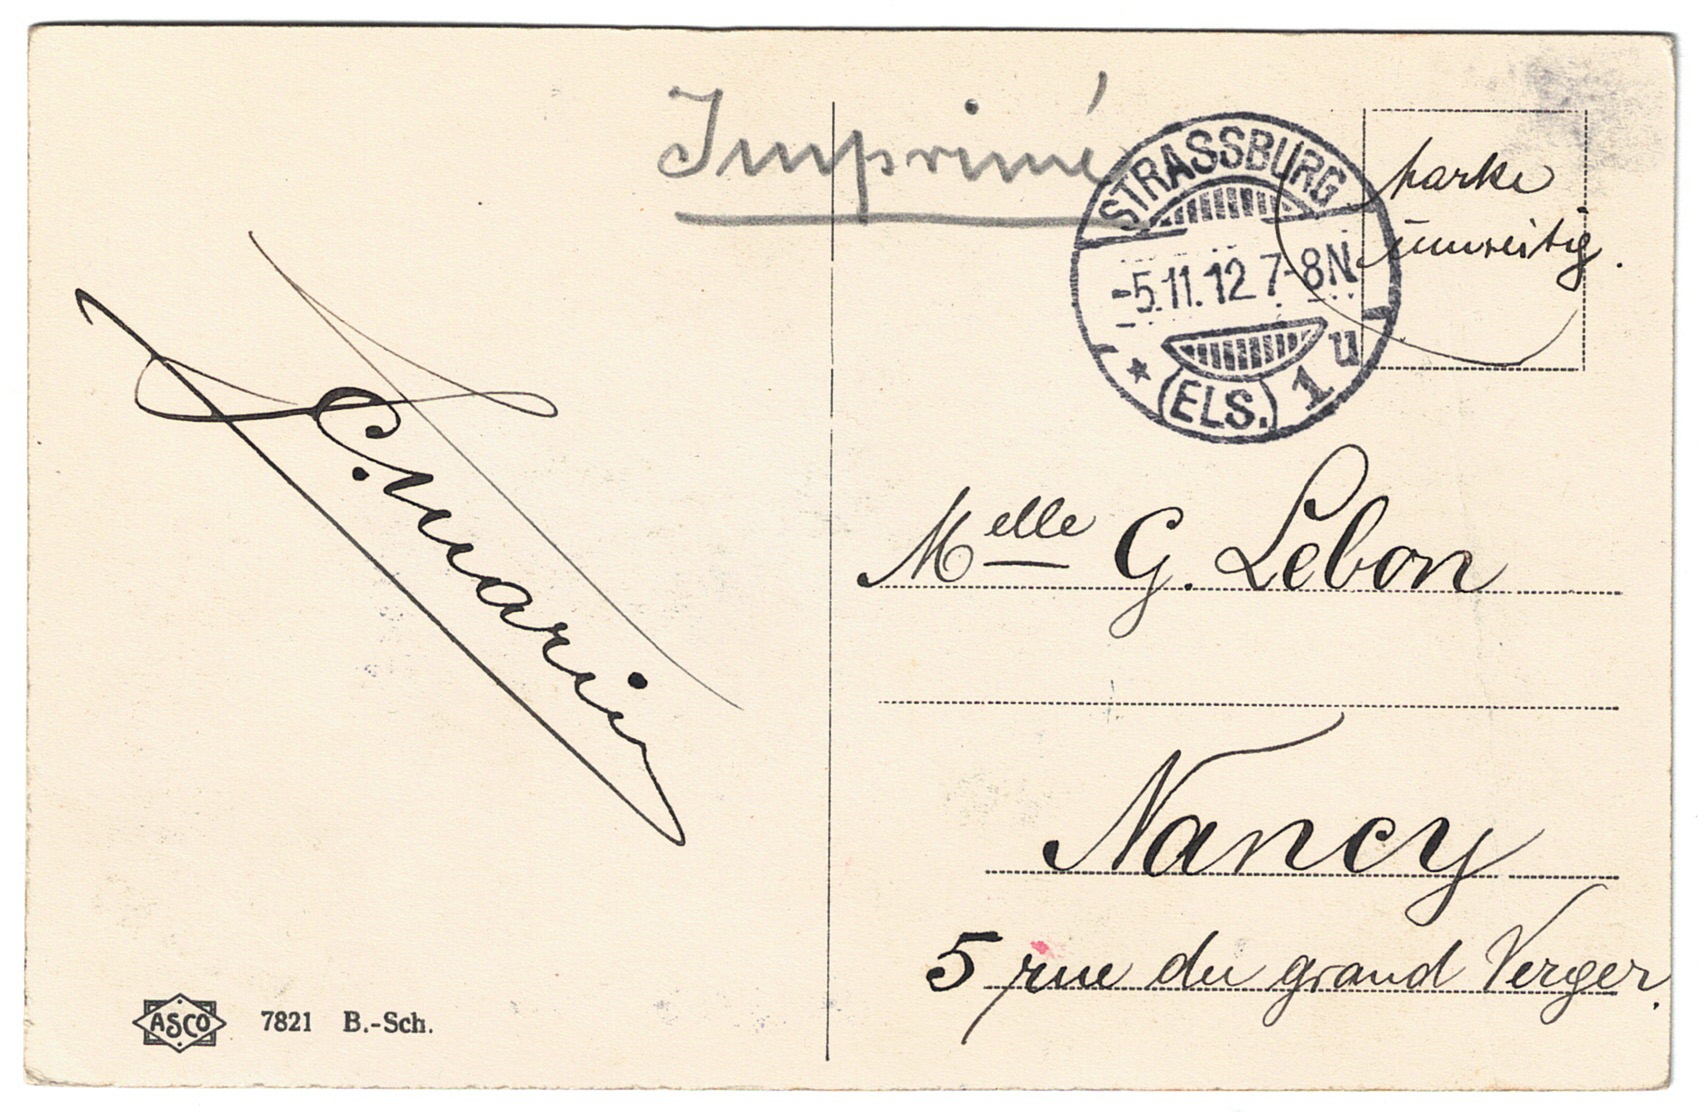 Imprimé
STRASSBURG
-5.11.12.7-8N
* (ELS.) 1 u
Marke
umseitig.
Melle G. Lebon
Nancy
5 rue du grand Verger.
ASCO 7821 B.-Sch.